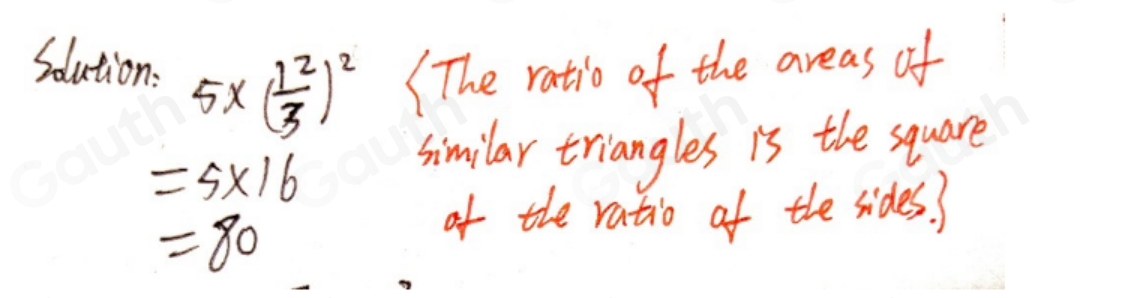 Solution: 5×(12/3)² {The ratio of the areas of
= 5×16 similar triangles is the square
= 80 of the ratio of the sides.}
Gauth Gauth Gauth Gauth